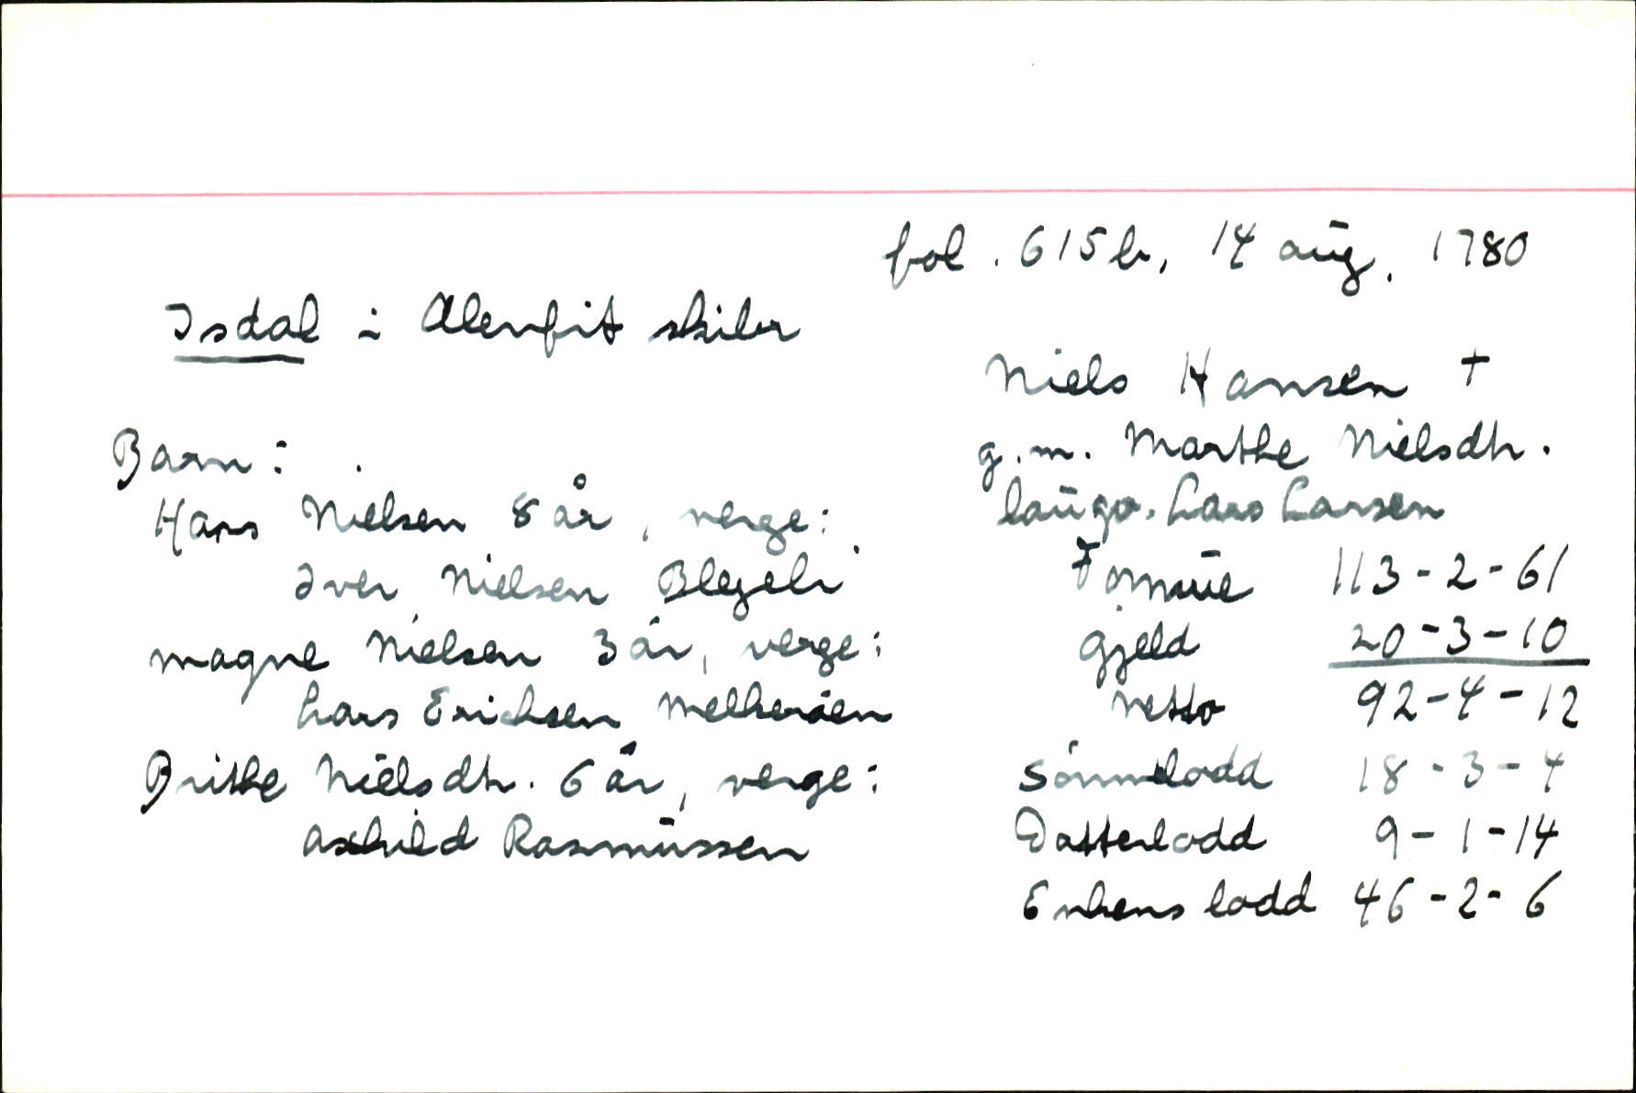 fol. 615b, 14 aug. 1780
Isdal i Alenfit skiber
Niels Hansen +
g.m. Marthe Nielsdtr.
laugv. Lars Larsen
Barn:
Hans Nielsen 8 år, verge:
Iver Nielsen
Magne Nielsen 3 år, verge:
Lars Erichsen
Brithe Nielsdtr. 6 år, verge:
Rasmussen
Formue 113-2-61
Gjeld 20-3-10
Netto 92-4-12
Sønnelodd 18-3-4
Datterlodd 9-1-14
Enkens lodd 46-2-6